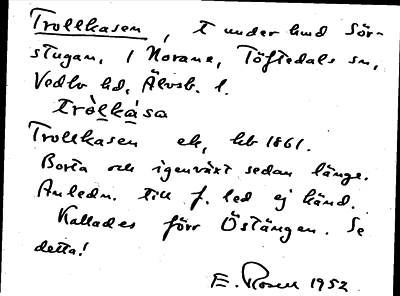 Trollkasen, t under hmd Sör-
stugan, i Norane, Töftedals sn,
Vedbo hd, Älvsb. l.
tròlkàsa
Trollkasen ek, hb 1861.
Borta och igenväxt sedan länge.
Anledn. till f. led ej känd.
Kallades förr Östängen. Se
detta!
E. Rosell 1952